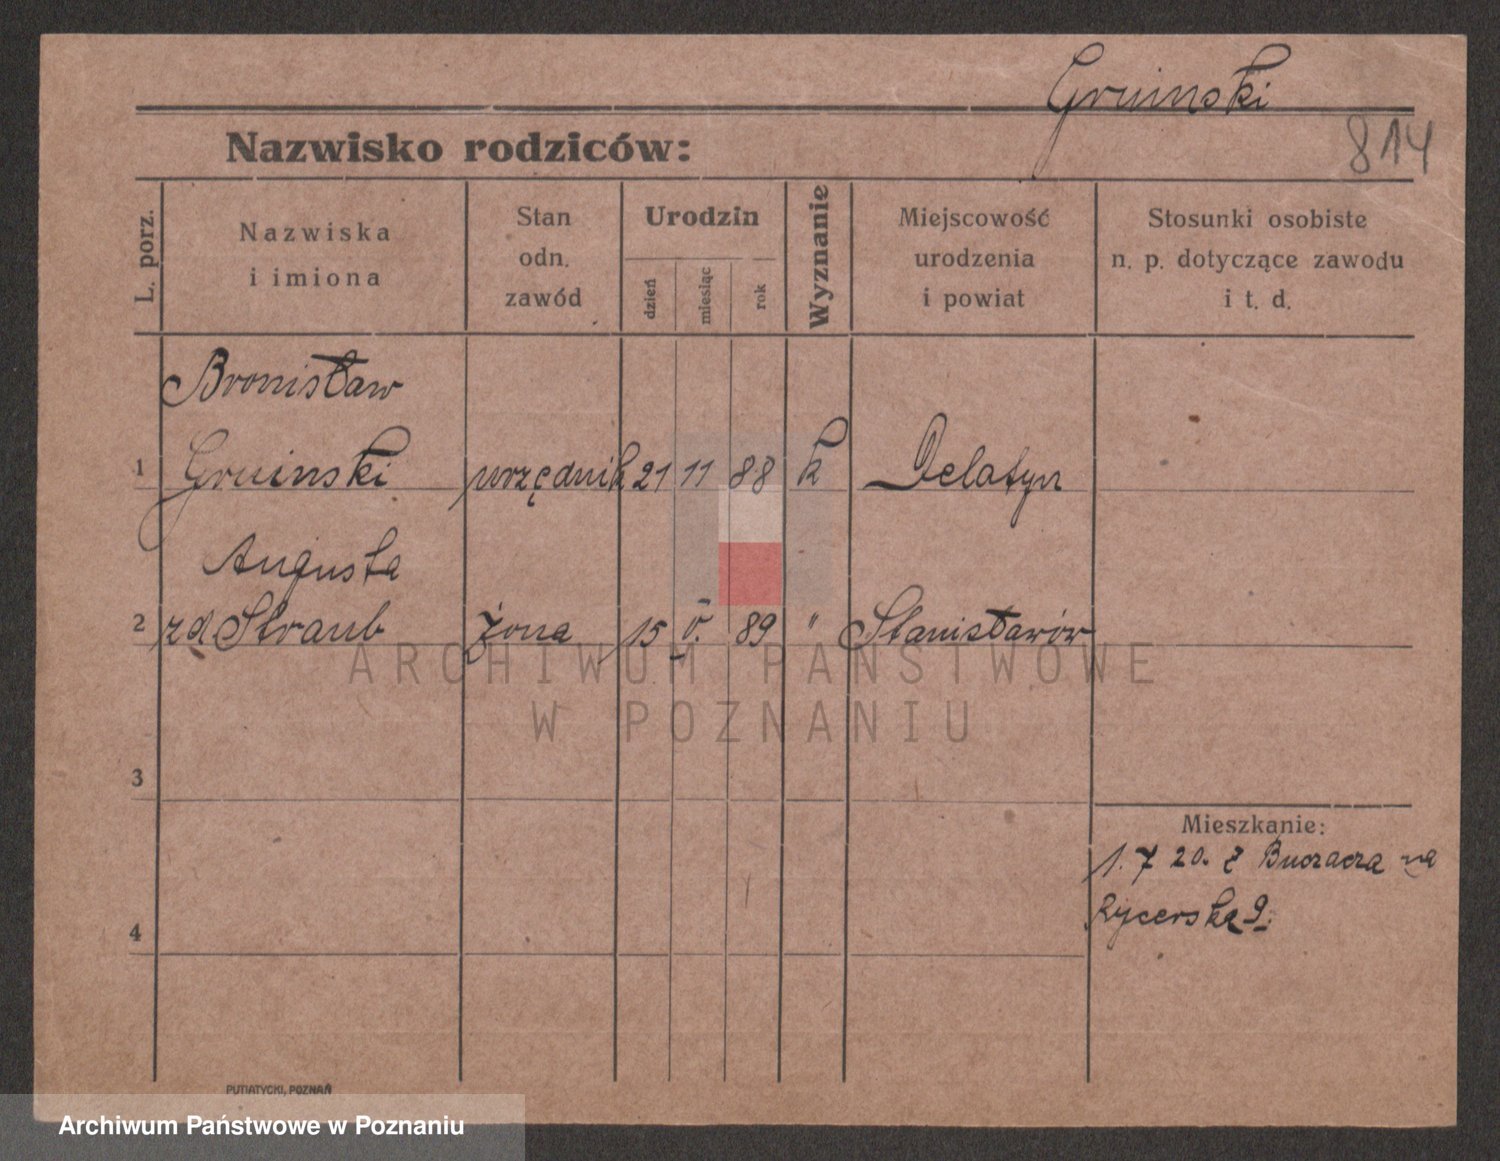 Gruinski
814
Nazwisko rodziców:
L. porz.
Nazwiska
i imiona
Stan
odn.
zawód
Urodzin
dzień
miesiąc
rok
Wyznanie
Miejscowość
urodzenia
i powiat
Stosunki osobiste
n. p. dotyczące zawodu
i t. d.
Bronisław
1 Gruinski urzędnik 21 11 88 k Delatyn
Augusta
2 zd Straub żona 15 V. 89 " Stanisławów
ARCHIWUM PAŃSTWOWE
W POZNANIU
3
Mieszkanie:
1. 7 20. z Buczacza na
Rycerska 9.
4
PUTIATYCKI, POZNAŃ
Archiwum Państwowe w Poznaniu